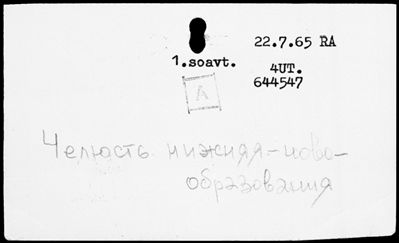 22.7.65 RA
1.soavt.
4UT.
644547
A
Челюсть нижняя-ново-
образования